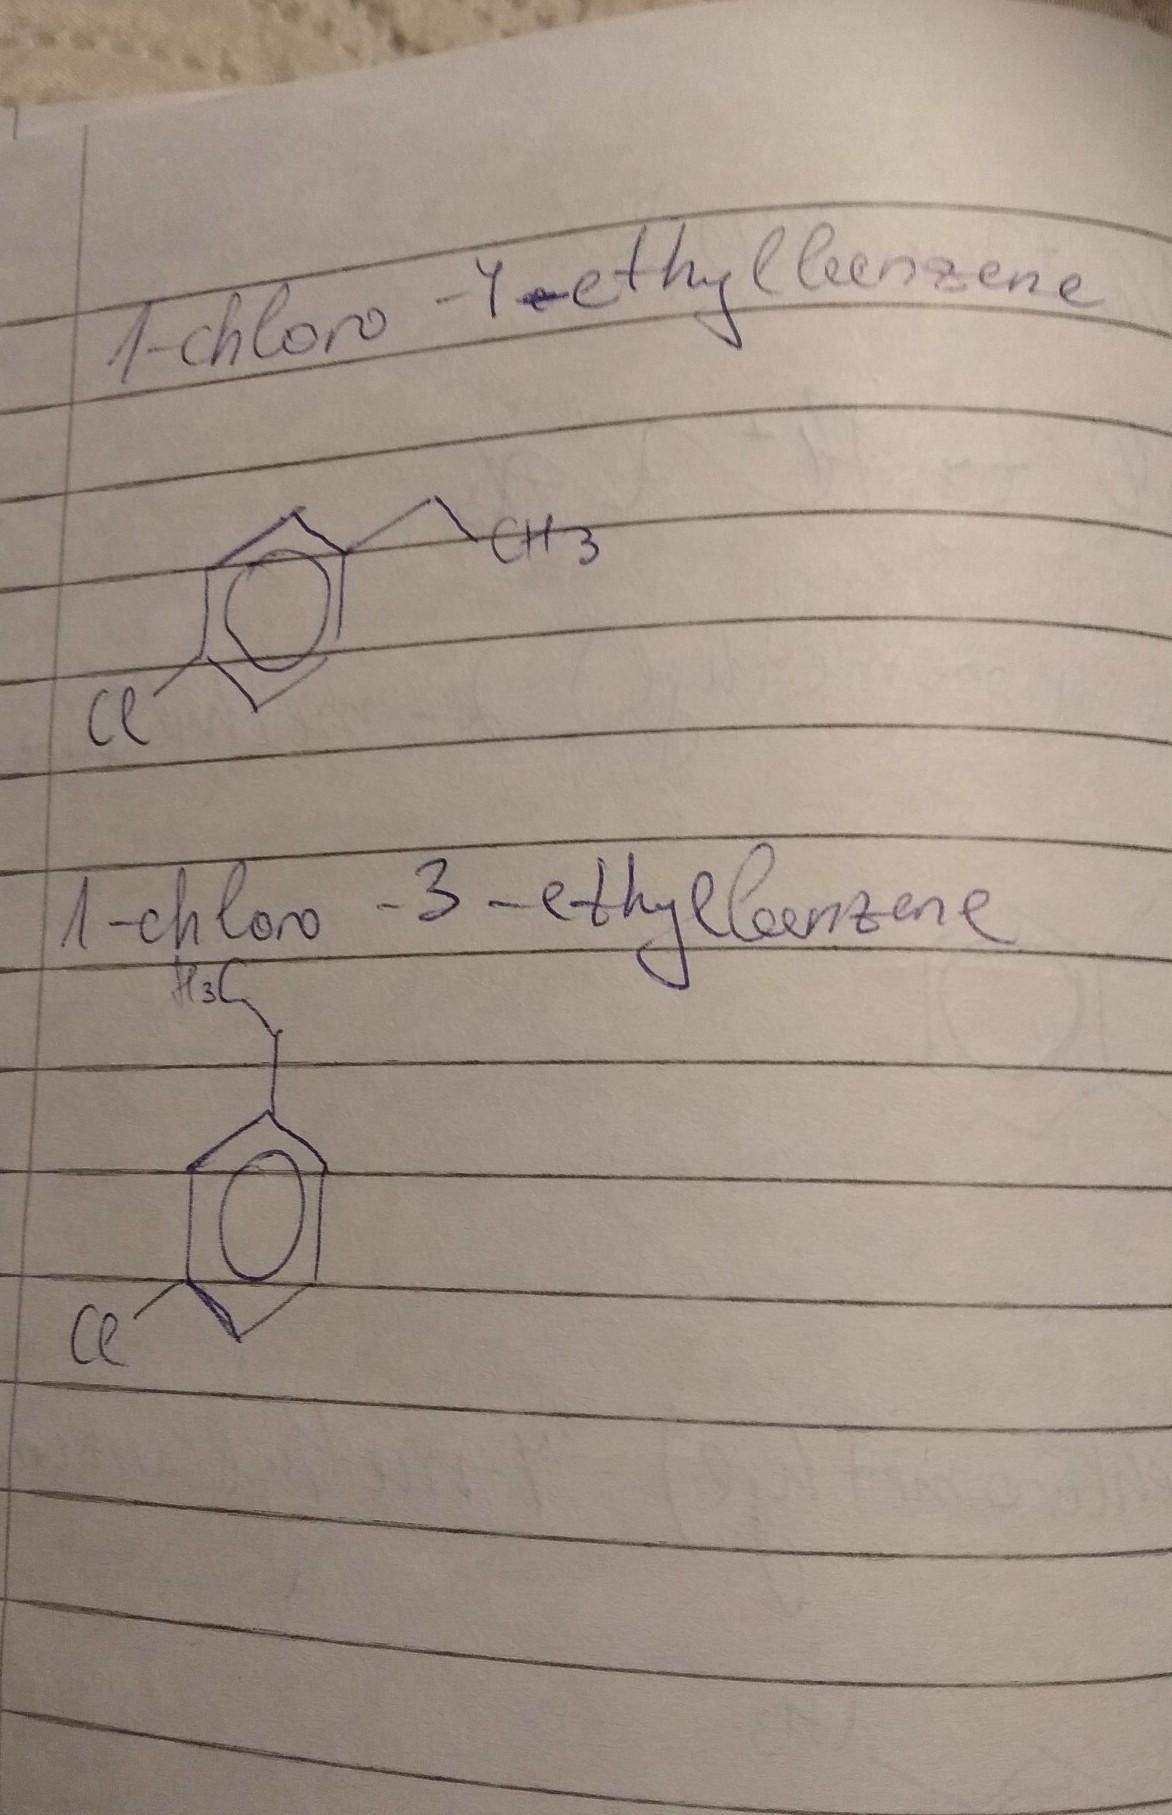 1-chloro-4-ethylbenzene
CH3
Cl
1-chloro-3-ethylbenzene
H3C
Cl